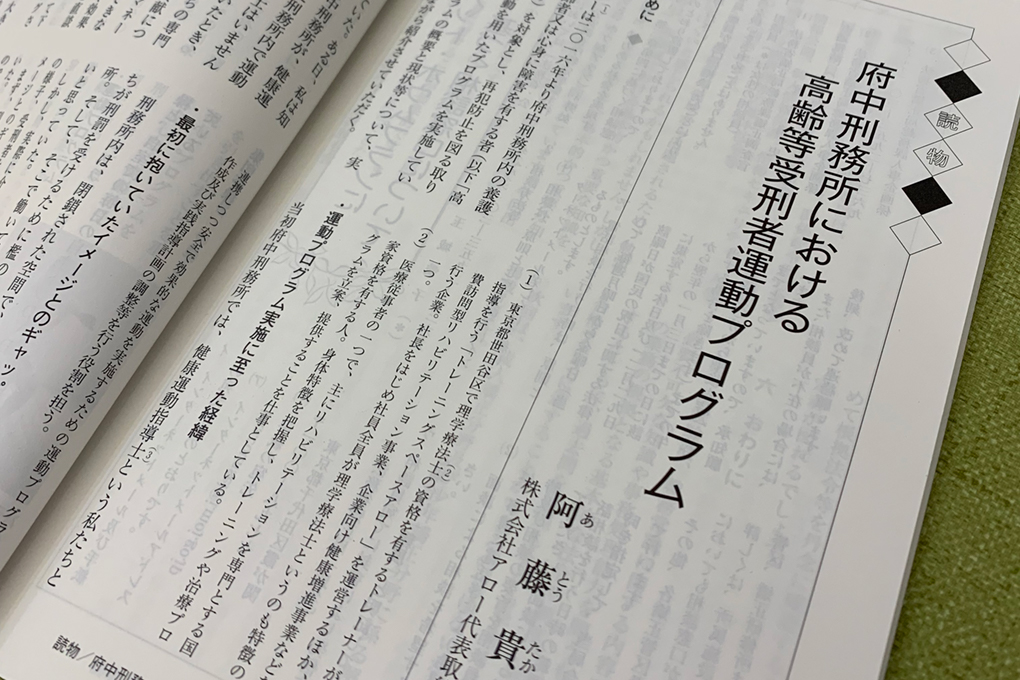 読物
府中刑務所における
高齢等受刑者運動プログラム
阿藤貴
あとうたか
株式会社アロー代表取
めに
ーは二〇一六年より府中刑務所内の養護
者又は心身に障害を有する者(以下「高
)を対象とし、再犯防止を図る取り
動を用いたプログラムを実施してい
ラムの概要と現状等について、実
から紹介させていただく。
(1) 東京都世田谷区で理学療法士の資格を有するトレーナーが
指導を行う「トレーニングスペースアロー」を運営するほか、
費訪問型リハビリテーション事業、企業向け健康増進事業などを
行う企業。社長をはじめ社員全員が理学療法士というのも特徴の
一つ。
(2) 医療従事者の一つで、主にリハビリテーションを専門とする国
家資格を有する人。身体特徴を把握し、トレーニングや治療プロ
グラムを立案、提供することを仕事としている。
・運動プログラム実施に至った経緯
当初府中刑務所では、健康運動指導士(3)という私たちと
ていた。ある日、私は知
中刑務所が、健康運
士はいません
刑務所内で運動
いたとき、
らの専門
献につ
連携しつつ安全で効果的な運動を実施するための運動プログラ
作成及び実践指導計画の調整等を行う役割を担う。
・最初に抱いていたイメージとのギャップ。
刑務所内は、閉鎖された空間で、
ちが刑罰を受けるために
所。そして、そこで働い
いと思っていた。
読物/府中刑務